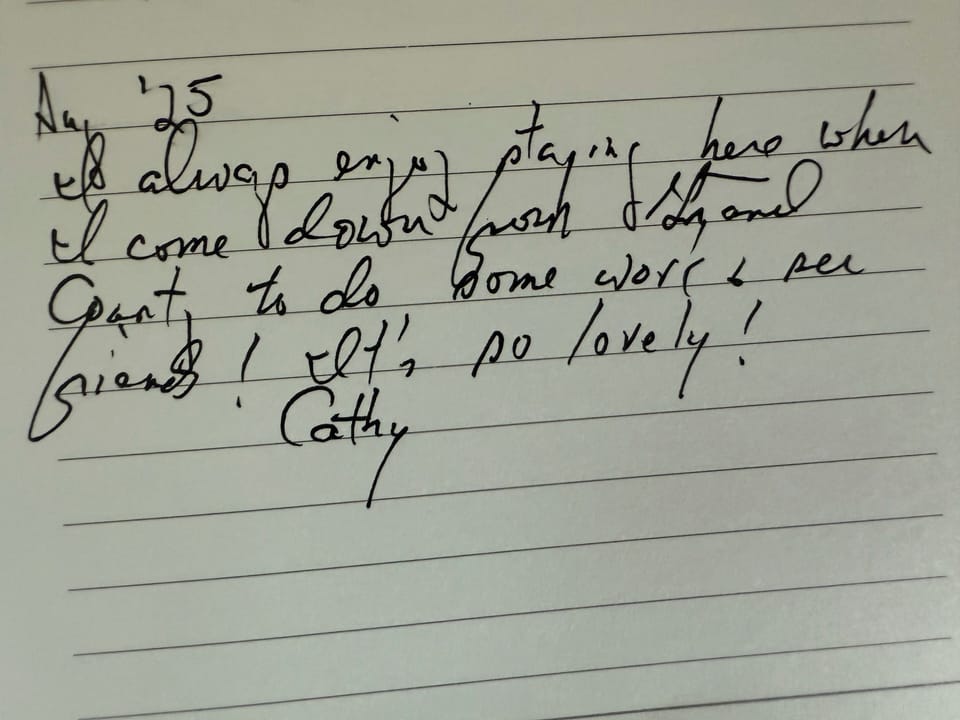 Aug '25
I always enjoy staying here when
I come down from
Coast, to do some work & see
friends! It's so lovely!
Cathy